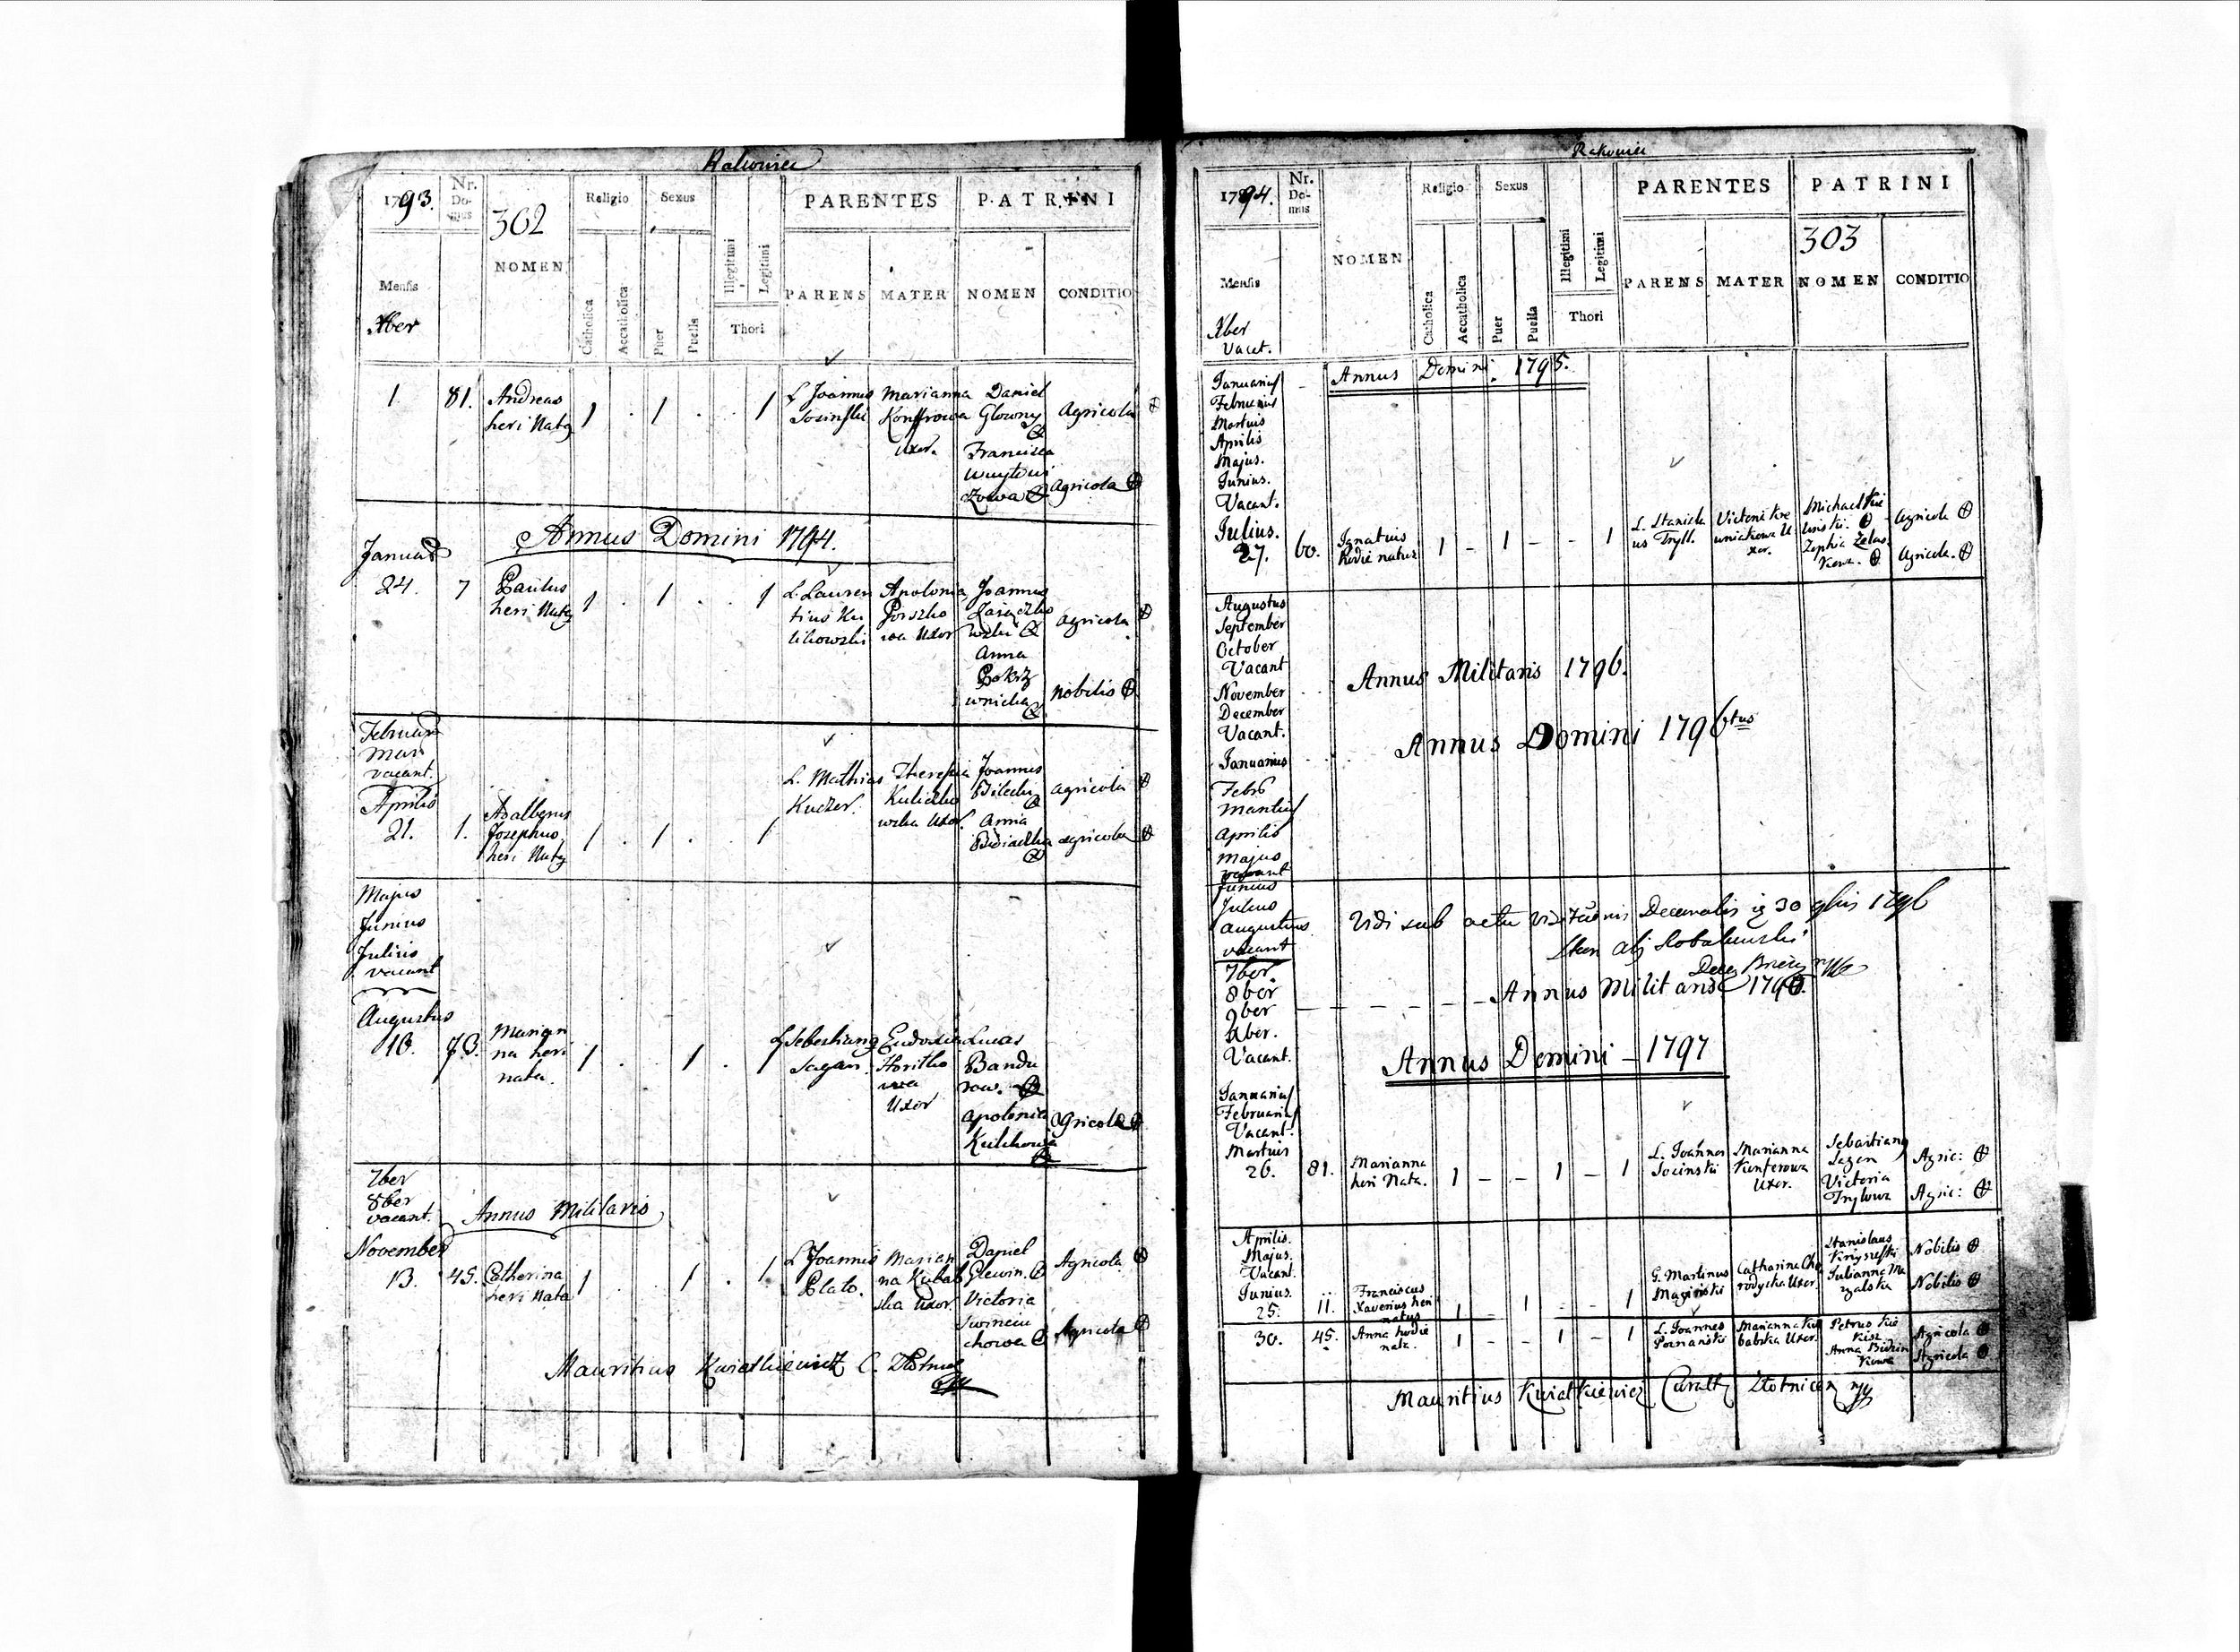 Rakoviec
1793.
Nr. Do- mus
302
NOMEN
Religio
Sexus
PARENTES
PATRINI
Mensis
Xber
Catholica
Accatholica
Puer
Puella
Illegitimi
Legitimi
Thori
PARENS
MATER
NOMEN
CONDITIO
1. 81. Andreas 1 . 1 . . 1 L Joannes Marianna Daniel Agricola
heri Natg Sosinski Konffrowa Glowny
Uxor. Francisca
Agricola
Annus Domini 1794.
Januar
24. 7 Paulus 1 . 1 . . 1 L. Lauren Apolonia Joannes agricola
heri Natg tius Ku Porszko
likowski wa Uxor
Anna
nobilis
Februar
Mar
vacant.
Aprilis
21. 1. Adalbertus 1 . 1 . 1 L. Mathias Theresia Joannes agricola
Josephus Kuczer. Kulicko Bilecki
heri Natg wska Uxor. Anna
agricola
Majus
Junius
Julius
vacant
Augustus
10. 73. Marian 1 . . 1 . 1 L Sebestiang Eudoxia Lucas
na heri Sagan. Horitko Bandu
nata. wa row.
Uxor Apolonia Agricola
Kulikowa
7ber
8ber
vacant. Annus Militaris
November
13. 45. Catherina 1 . 1 . 1 L Joannes Marian Daniel Agricola
heri Nata Plato. na Kubab Glewin.
ska Uxor. Victoria
Swincu
chowa Agricola
Mauritius Kwiatkiewicz C. Zlotnic
Rakoviec
1794.
Nr. Do- mus
NOMEN
Religio
Sexus
PARENTES
PATRINI
303
Mensis
Xber
Vacat.
Catholica
Accatholica
Puer
Puella
Illegitimi
Legitimi
Thori
PARENS
MATER
NOMEN
CONDITIO
Januarius - Annus Domini 1795.
Februarius
Martius
Aprilis
Majus.
Junius.
Vacant.
Julius.
27. 60. Ignatius 1 - 1 - - 1 L. Stanisla Victoria Kre Michael Kul Agricola
hodie natus us Tryll. wniakowa U inski.
xor. Zophia Zelas Agricola.
kowa.
Augustus
September
October
Vacant
November Annus Militaris 1796.
December
Vacant. Annus Domini 1796tus
Januarius
Febr
Martius
Aprilis
Majus
vacant
Junius
Julius
Augustus Vidi sub actu Visitaonis Decanalis 30 9bris 1796
vacant
7ber.
8ber - - - - - Annus Militaris 179
9ber
Xber.
Vacant. Annus Domini - 1797
Januarius
Februarius
Vacant.
Martius
26. 81. Marianna 1 - - 1 - 1 L. Joannes Marianna Sebastiang Agric:
heri Nata. Socinski Kunferowa Sagan
Uxor. Victoria Agric:
Trylowa
Aprilis.
Majus.
Vacant.
Junius.
25. 11. Franciscus 1 - 1 - - 1 G. Martinus Catharina Cho Stanislaus Nobilis
Xaverius heri Maginski rodycka Uxor. Krzyszefski
natus Julianna Ma Nobilis
zalska
30. 45. Anna hodie 1 - - 1 - 1 L. Joannes Marianna Ku Petrus Kul Agricola
nata. Poznanski babska Uxor. Anna Agricola
Mauritius Kwiatkiewicz Curatg Zlotnicen